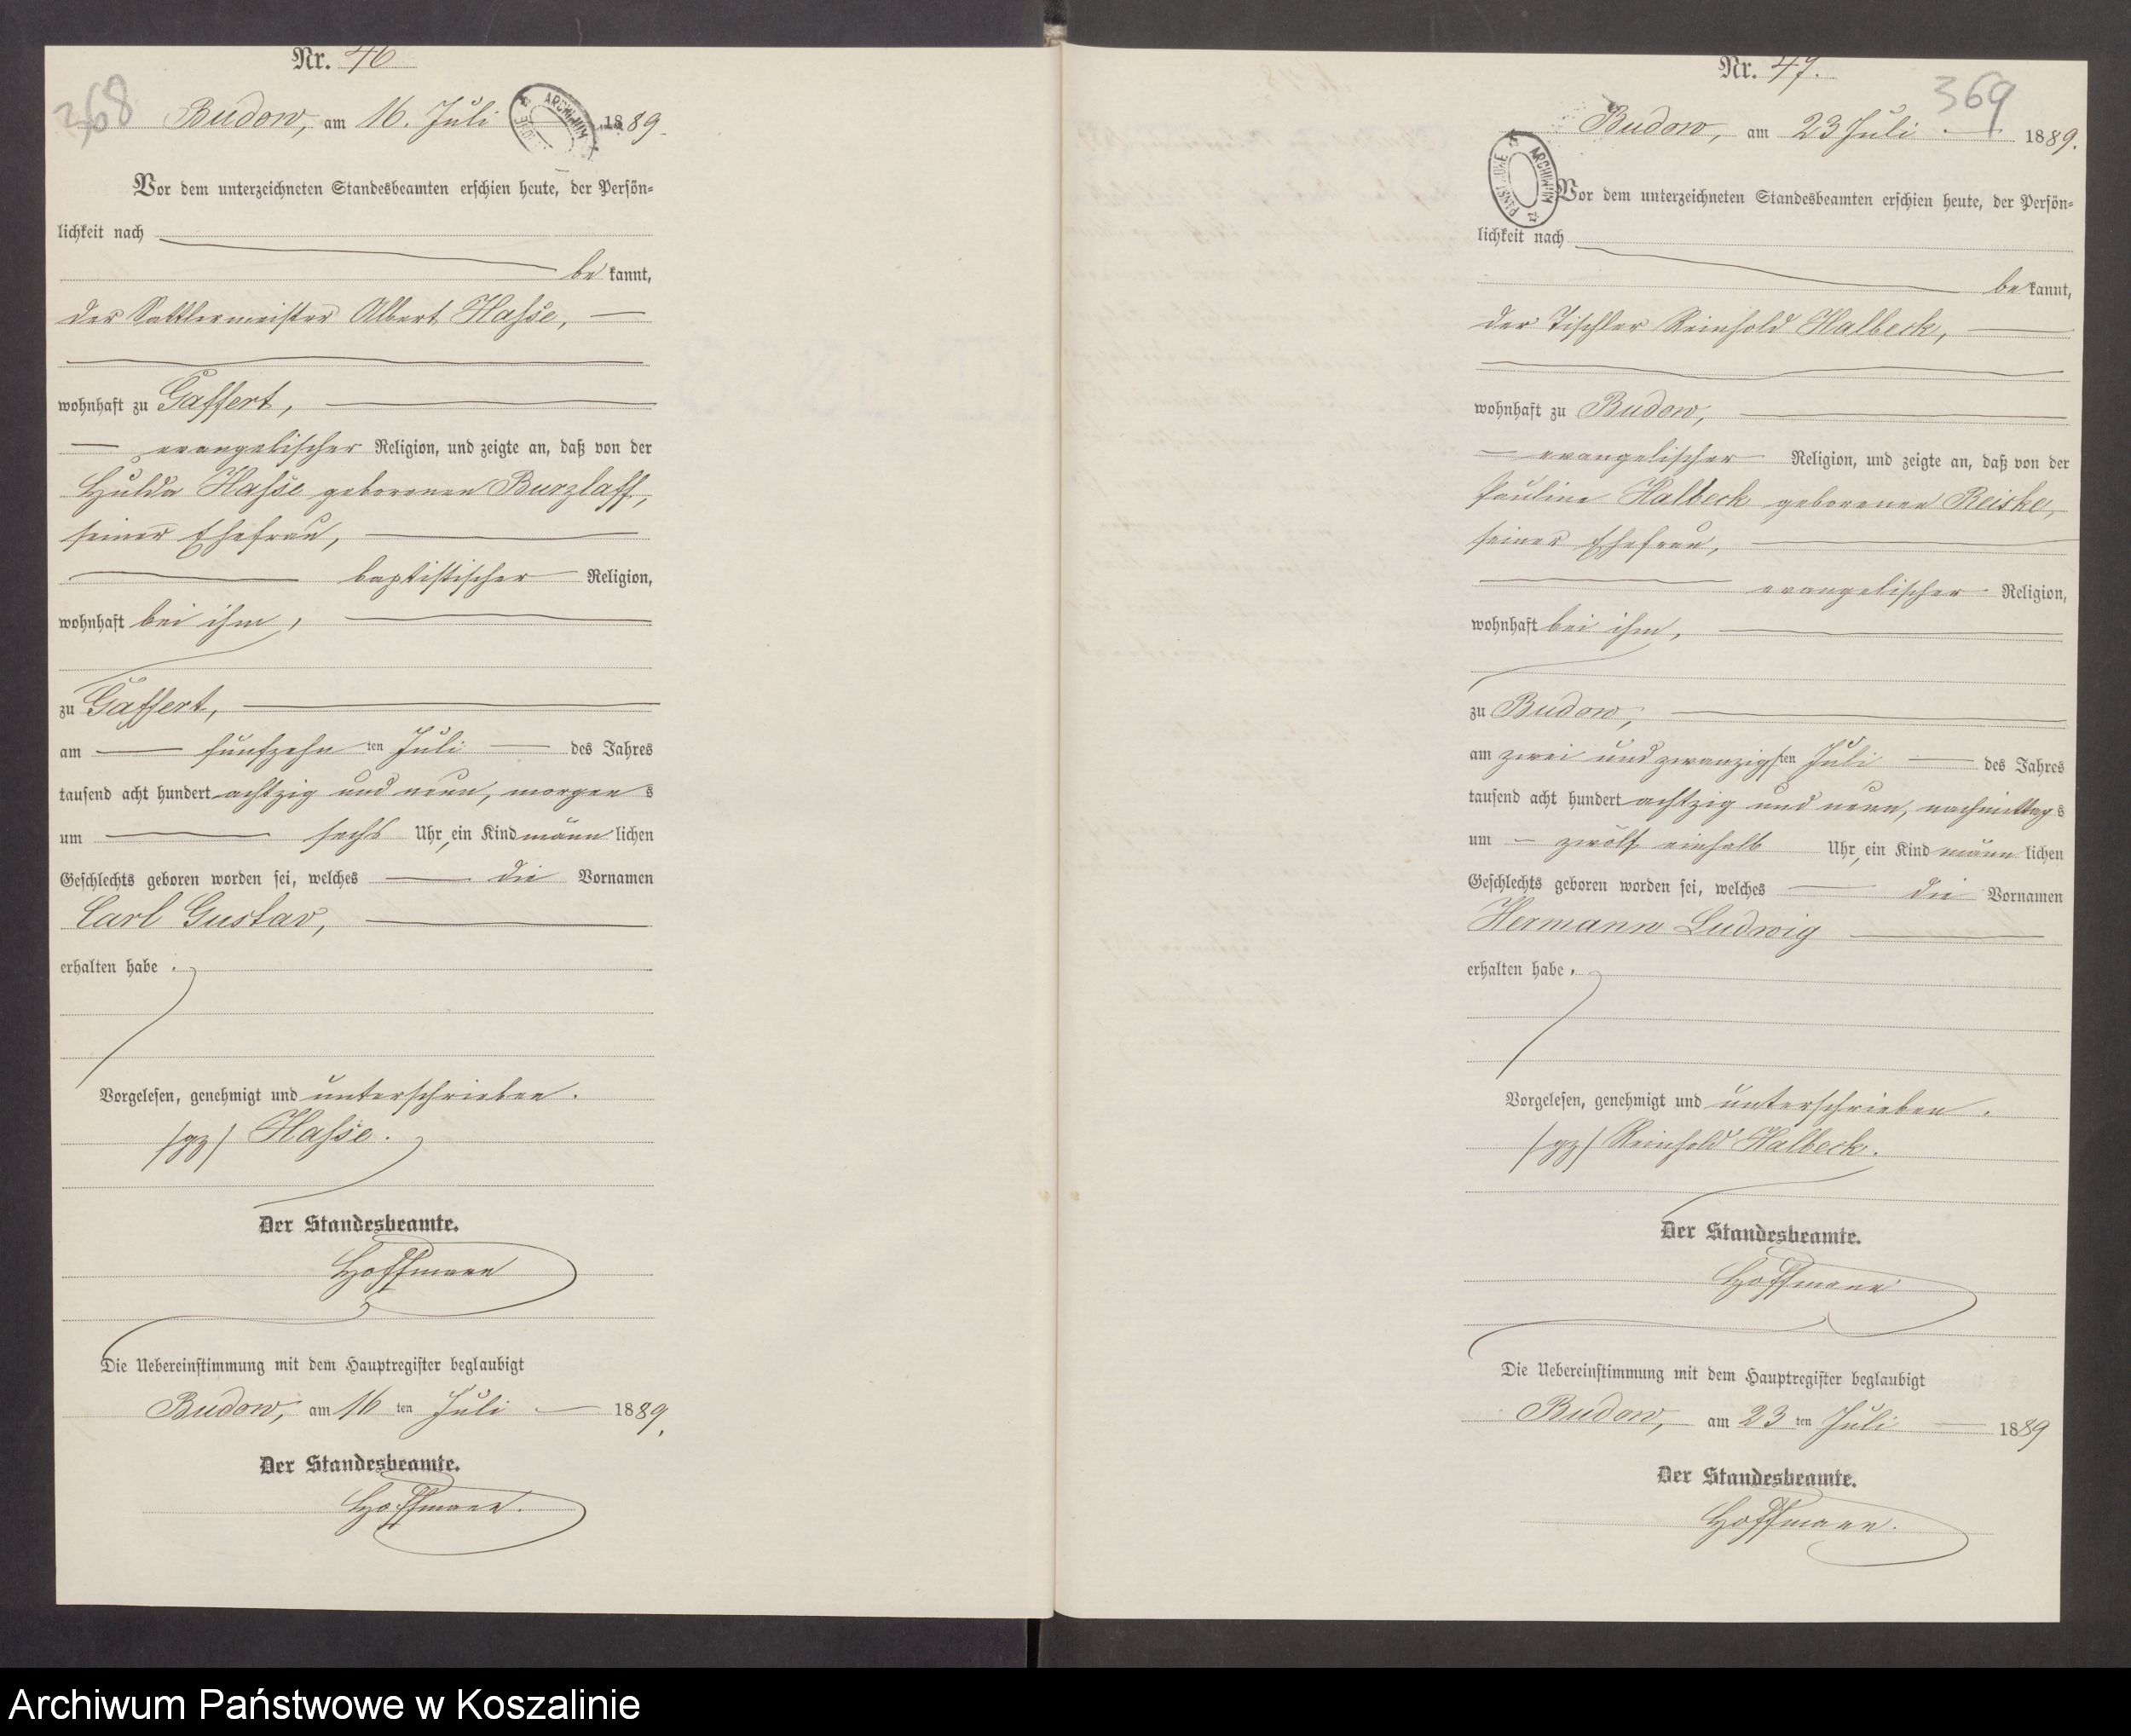 Nr. 46
368
Budow, am 16. Juli 1889.
ARCHIWUM
Vor dem unterzeichneten Standesbeamten erschien heute, der Persön=
lichkeit nach
be kannt,
der Sattlermeister Albert Hasse,
wohnhaft zu Gaffert,
evangelischer Religion, und zeigte an, daß von der
Hulda Hasse geborenen Burzlaff,
seiner Ehefrau,
baptistischer Religion,
wohnhaft bei ihm,
zu Gaffert,
am fünfzehn ten Juli des Jahres
tausend acht hundert achtzig und neun, morgen s
um sechs Uhr, ein Kind männ lichen
Geschlechts geboren worden sei, welches die Vornamen
Carl Gustav,
erhalten habe.
Vorgelesen, genehmigt und unterschrieben.
/gz/ Hasse.
Der Standesbeamte.
Hoffmann
Die Uebereinstimmung mit dem Hauptregister beglaubigt
Budow, am 16 ten Juli 1889.
Der Standesbeamte.
Hoffmann.
Nr. 47.
369
Budow, am 23 Juli 1889.
ARCHIWUM
Vor dem unterzeichneten Standesbeamten erschien heute, der Persön=
lichkeit nach
be kannt,
der Tischler Reinhold Halbeck,
wohnhaft zu Budow,
evangelischer Religion, und zeigte an, daß von der
Pauline Halbeck geborenen Reiske,
seiner Ehefrau,
evangelischer Religion,
wohnhaft bei ihm,
zu Budow,
am zwei und zwanzigsten Juli des Jahres
tausend acht hundert achtzig und neun, nachmittag s
um zwölf einhalb Uhr, ein Kind männ lichen
Geschlechts geboren worden sei, welches die Vornamen
Hermann Ludwig
erhalten habe.
Vorgelesen, genehmigt und unterschrieben.
/gz/ Reinhold Halbeck.
Der Standesbeamte.
Hoffmann
Die Uebereinstimmung mit dem Hauptregister beglaubigt
Budow, am 23 ten Juli 1889
Der Standesbeamte.
Hoffmann.
Archiwum Państwowe w Koszalinie